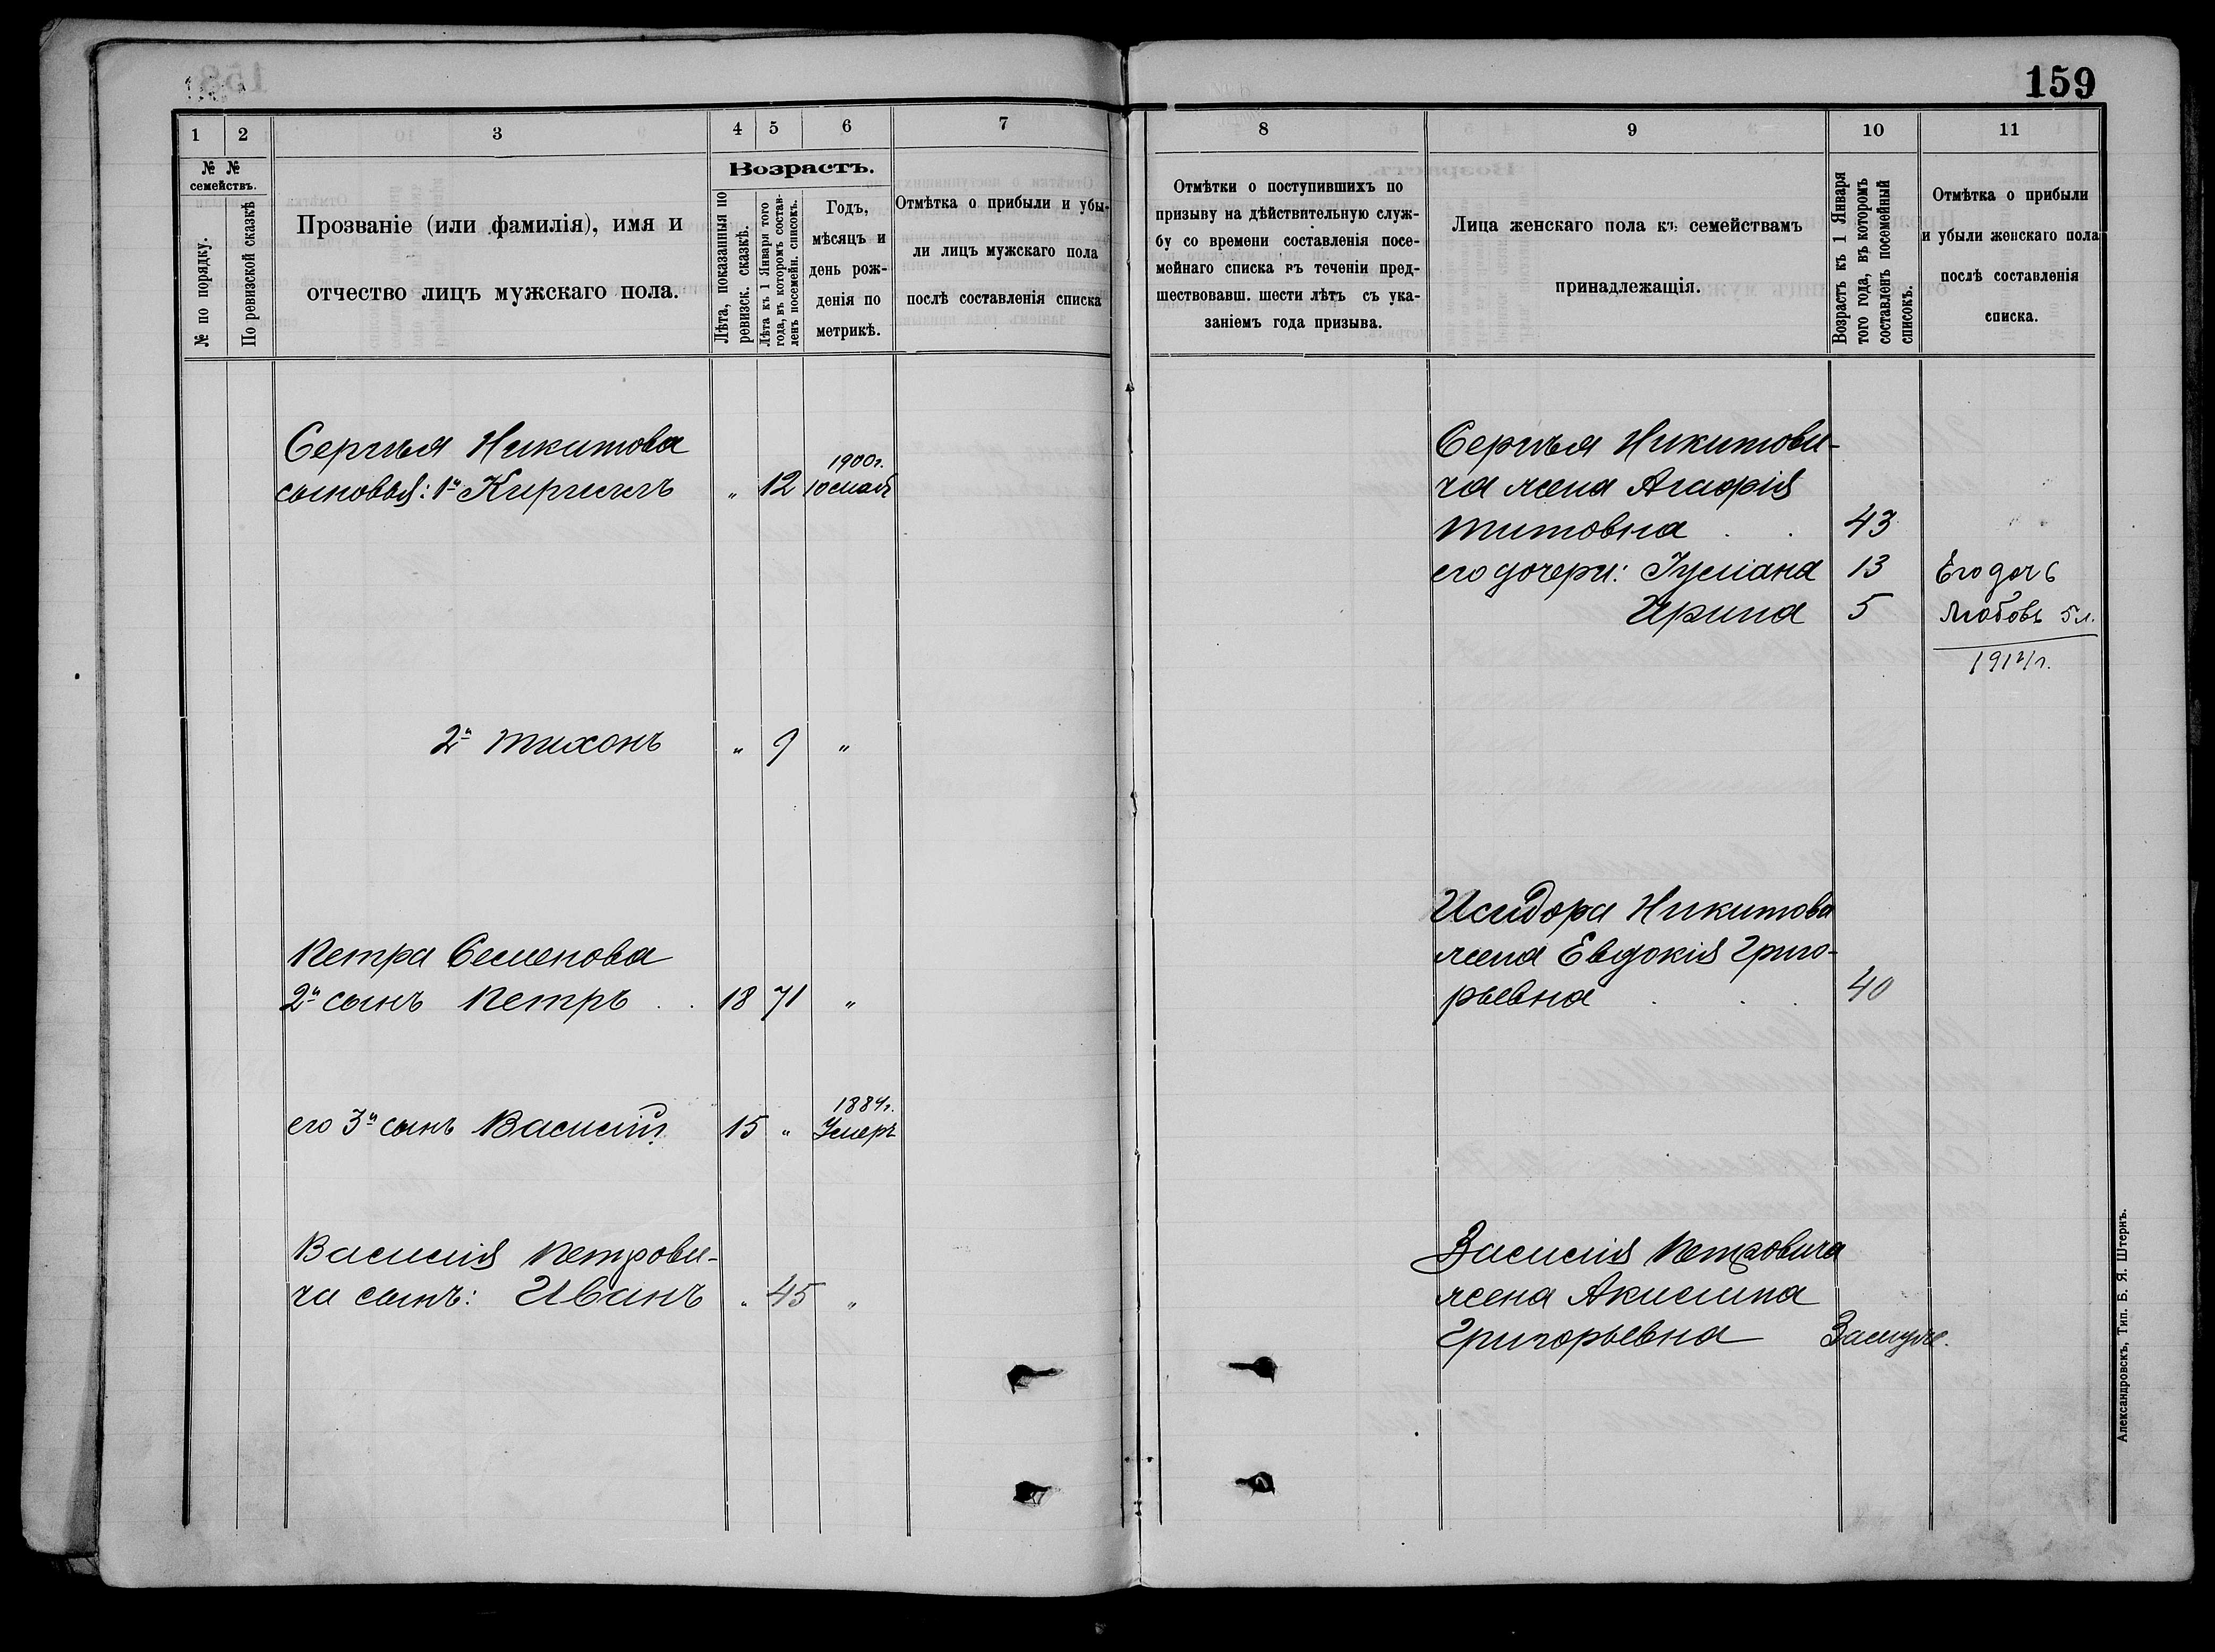 159
1 2 3 4 5 6 7
№ № семействъ.
№ по порядку.
По ревизской сказкѣ
Прозваніе (или фамилія), имя и
отчество лицъ мужскаго пола.
Возрастъ.
Лѣта, показанныя по
ревизск. сказкѣ.
Лѣта къ 1 Января того
года, въ которомъ состав-
ленъ посемейн. списокъ.
Годъ,
мѣсяцъ и
день рож-
денія по
метрикѣ.
Отмѣтка о прибыли и убы-
ли лицъ мужскаго пола
послѣ составленія списка
Сергѣя Никитова
1900г.
сыновья: 1й Кириллъ " 12 10 мая
2й Тихонъ " 9 "
Петра Семенова
2й сынъ Петръ 18 71 "
1884г.
его 3й сынъ Василій 15 " Умеръ
Василія Петрови-
ча сынъ: Иванъ " 45 "
8 9 10 11
Отмѣтки о поступившихъ по
призыву на дѣйствительную служ-
бу со времени составленія посе-
мейнаго списка въ теченіи пред-
шествовавш. шести лѣтъ съ ука-
заніемъ года призыва.
Лица женскаго пола къ семействамъ
принадлежащія.
Возрастъ къ 1 Января
того года, въ которомъ
составленъ посемейный
списокъ.
Отмѣтка о прибыли
и убыли женскаго пола
послѣ составленія
списка.
Сергѣя Никитови-
ча жена Агафія
Титовна 43
его дочери: Іуліана 13 Его дочь
Ирина 5 Любовь 5 л.
191 г.
Исидора Никитова
жена Евдокія Григо-
рьевна 40
Василія Петровича
жена Акилина
Григорьевна Замуж.
Александровскъ, Тип. Б. Я. Штернъ.